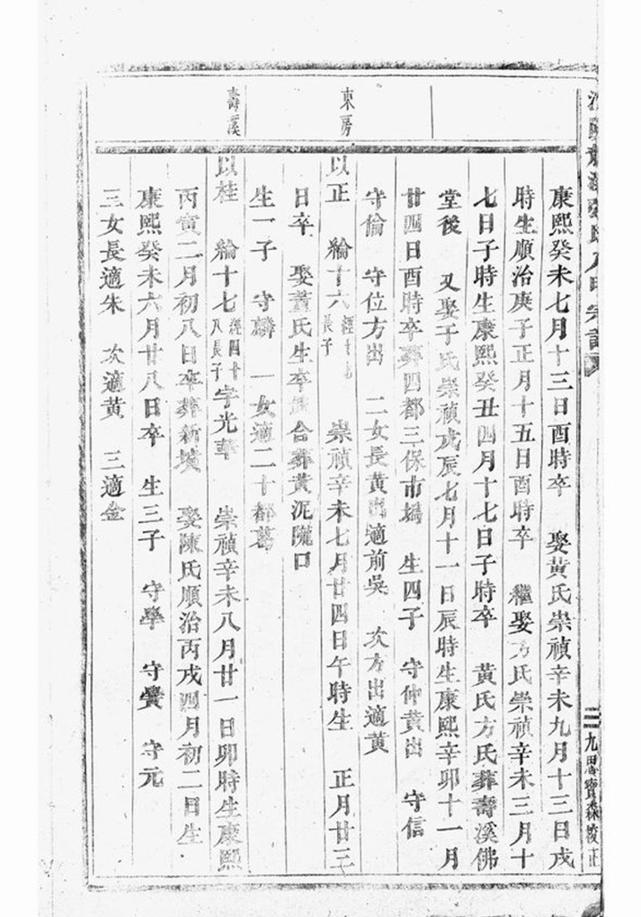 康熙癸未七月十三日酉時卒 娶黃氏崇禎辛未九月十三日戌
時生順治庚子正月十五日酉時卒 繼娶方氏崇禎辛未三月十
七日子時生康熙癸丑四月十七日子時卒 黃氏方氏葬壽溪佛
堂後 又娶于氏崇禎戊辰七月十一日辰時生康熙辛卯十一月
廿四日酉時卒葬四都三保市塢 生四子 守仲黃出 守信
守倫 守位方出 二女長黃出適前吳 次方出適黃
東房
以正 綸十六 經十七長子 崇禎辛未七月廿四日午時生 正月廿三
日卒 娶氏生卒合葬黃泥隴口
生一子 守 一女適二十都葛
壽溪
以桂 綸十七 經四十八長子 字光華 崇禎辛未八月廿一日卯時生康熙
丙寅二月初八日卒葬新墳 娶陳氏順治丙戌四月初二日生
康熙癸未六月廿八日卒 生三子 守學 守黌 守元
三女長適朱 次適黃 三適金